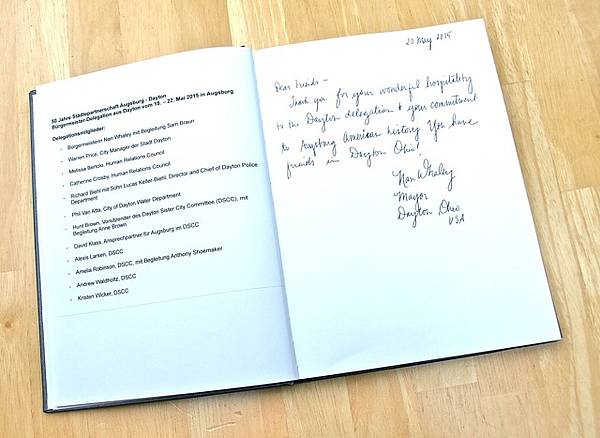 50 Jahre Städtepartnerschaft Augsburg - Dayton
Bürgermeister-Delegation aus Dayton vom 18. – 22. Mai 2015 in Augsburg
Delegationsmitglieder:
- Bürgermeisterin Nan Whaley mit Begleitung Sam Braun
- Warren Price, City Manager der Stadt Dayton
- Melissa Bertolo, Human Relations Council
- Catherine Crosby, Human Relations Council
- Richard Biehl mit Sohn Lucas Keller-Biehl, Director and Chief of Dayton Police
Department
- Phil Van Atta, City of Dayton Water Department
- Hunt Brown, Vorsitzender des Dayton Sister City Committee (DSCC), mit
Begleitung Anne Brown
- David Klass, Ansprechpartner für Augsburg im DSCC
- Alexis Larsen, DSCC
- Amelia Robinson, DSCC, mit Begleitung Anthony Shoemaker
- Andrew Waldholtz, DSCC
- Kristen Wicker, DSCC
20 May 2015
Dear Friends -
Thank you for your wonderful hospitality
to the Dayton delegation & your commitment
to Augsburg American history. You have
friends in Dayton Ohio!
Nan Whaley
Mayor
Dayton Ohio
USA